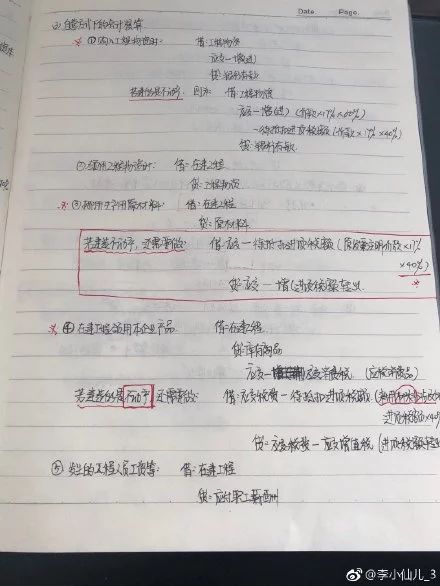 Date    Page.
② 自营方式下的会计核算
※ ①购入工程物资时:  借:工程物资
应交一增(进)
贷:银行存款
若建造的是不动产  则  借:工程物资
应交一增(进)(价款×17%×60%)
一待抵扣进项税额(价款×17%×40%)
贷:银行存款.
②领用工程物资时:  借:在建工程
贷:工程物资
※ ③领用生产用原材料:  借:在建工程
贷:原材料
若建造不动产,还需要做:  借:应交一待抵扣进项税额(原材料价款×17%
×40%)
贷:应交一增(进项税额转出)
※ ④在建工程领用本企业产品.  借:在建工程.
贷:库存商品
应交 应交消费税.(应税消费品)
若建造的是不动产 还需要做:  借:应交税费一待抵扣进项税额(
进项税额×40%
贷:应交税费一应交增值税(进项税额转出
⑤发生的工程人员工资等:  借:在建工程
贷:应付职工薪酬
@李小仙儿_3